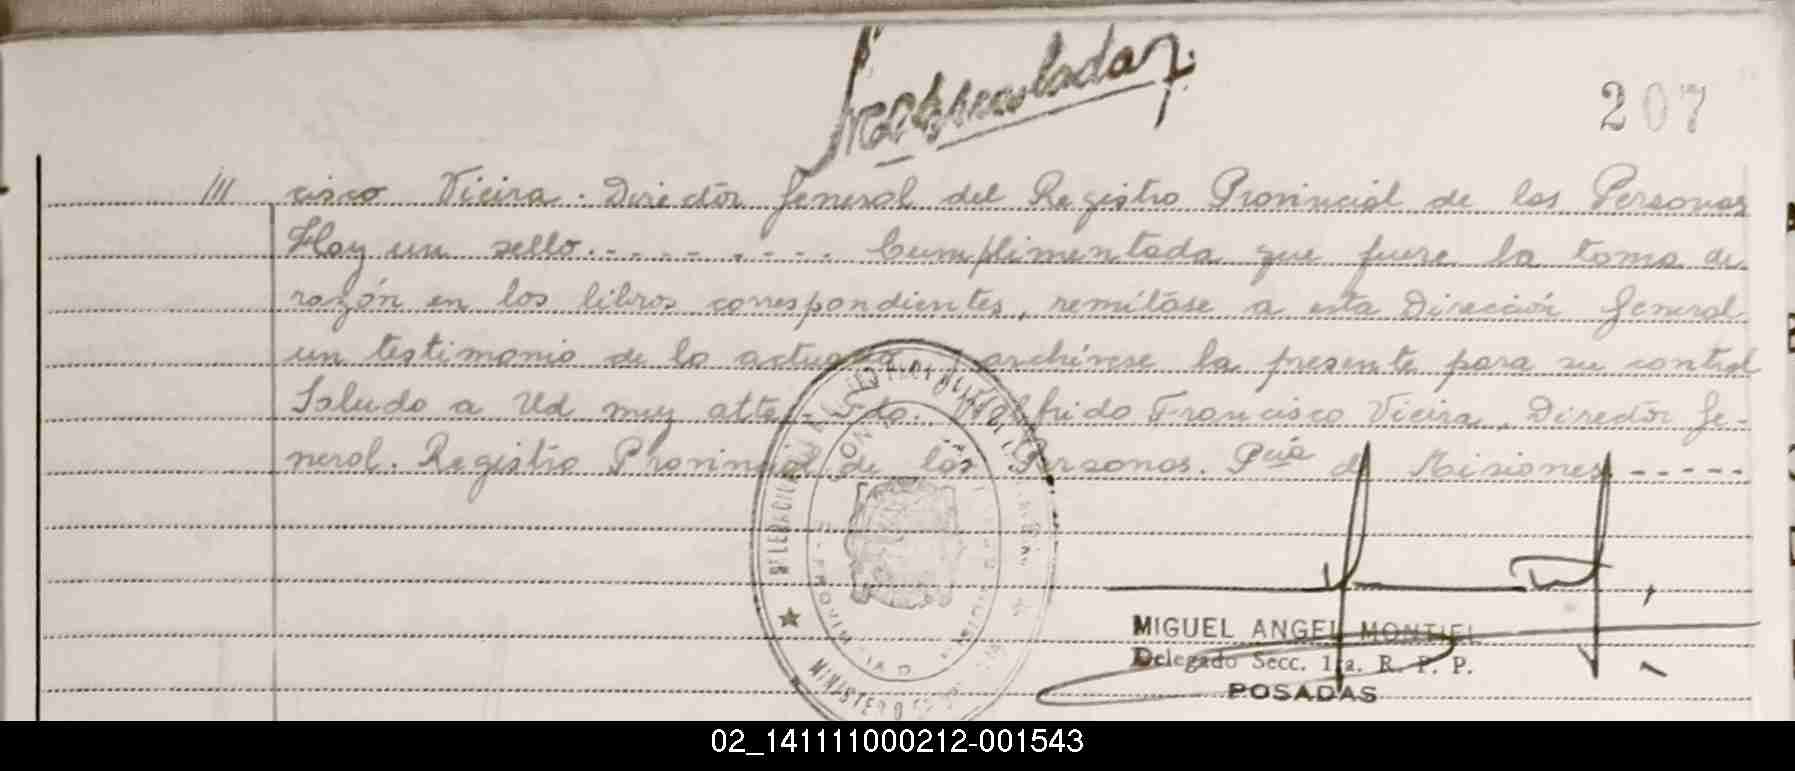 207
/// cisco Vieira. Director General del Registro Provincial de las Personas
Hay un sello.-.-.-.-.-.-. Cumplimentada que fuere la toma de
razón en los libros correspondientes, remítase a esta Dirección General
un testimonio de lo archívese la presente para su control
Saludo a Ud muy atte. Fdo. Francisco Vieira, Director Ge-
neral. Registro Provincial de las Personas. Pcia de Misiones-----
MIGUEL ANGEL MONTIEL
Delegado Secc. 1ra. R. P. P.
POSADAS
02_141111000212-001543